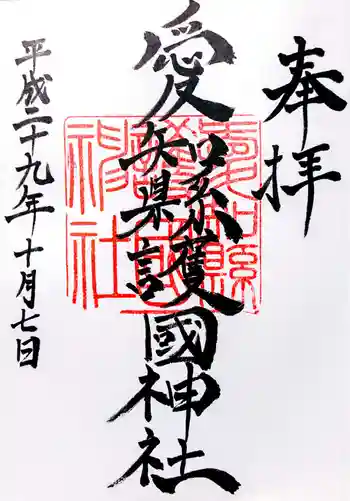 奉拝
愛知県護國神社
愛知縣護國神社
平成二十九年十月七日